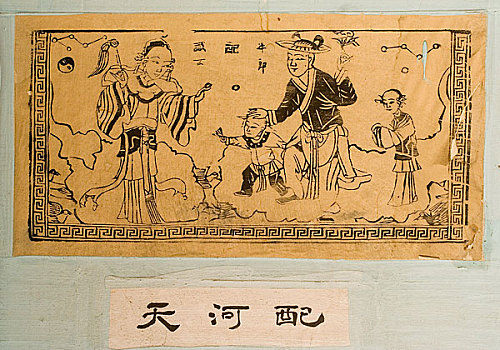 牛郎
配
織女
天河配